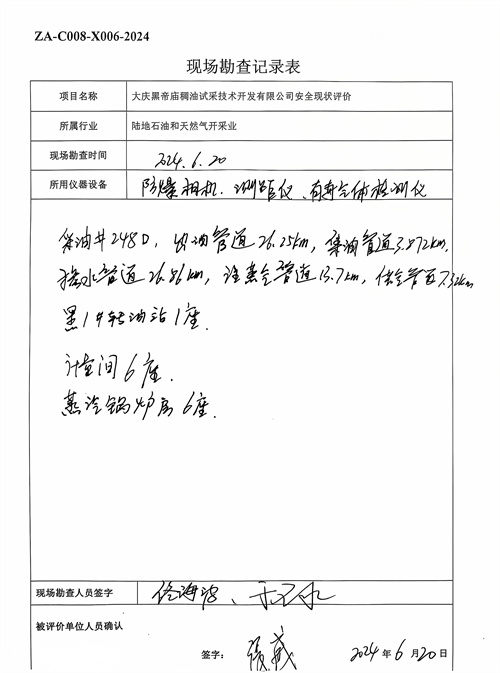 ZA-C008-X006-2024
现场勘查记录表
项目名称 大庆黑帝庙稠油试采技术开发有限公司安全现状评价
所属行业 陆地石油和天然气开采业
现场勘查时间 2024.6.20
所用仪器设备 防爆相机、测距仪、有毒气体检测仪
采油井248口,出油管道26.25km,集油管道3.872km,
掺水管道26.86km,注蒸汽管道13.7km,供气管道7.32km
黑1#转油站1座.
计量间6座.
蒸汽锅炉房6座.
现场勘查人员签字 佟海波、
被评价单位人员确认
签字: 张威 2024年6月20日